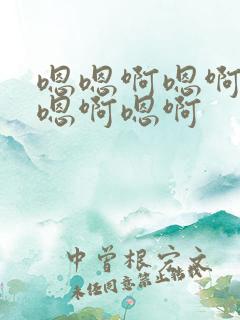 嗯嗯啊嗯啊
嗯啊嗯啊
中曾根穴文
未任同意禁止结婚